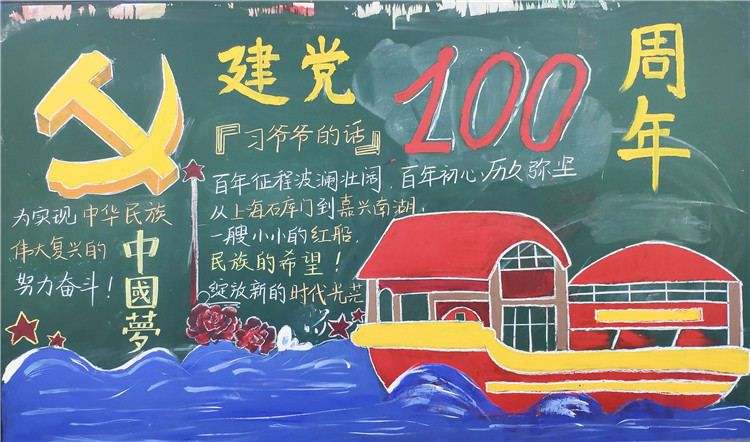 建党100周年
『习爷爷的话』
百年征程波澜壮阔，百年初心历久弥坚
从上海石库门到嘉兴南湖，
一艘小小的红船
民族的希望！
绽放新的时代光芒
为实现中华民族
伟大复兴的
努力奋斗！
中國夢